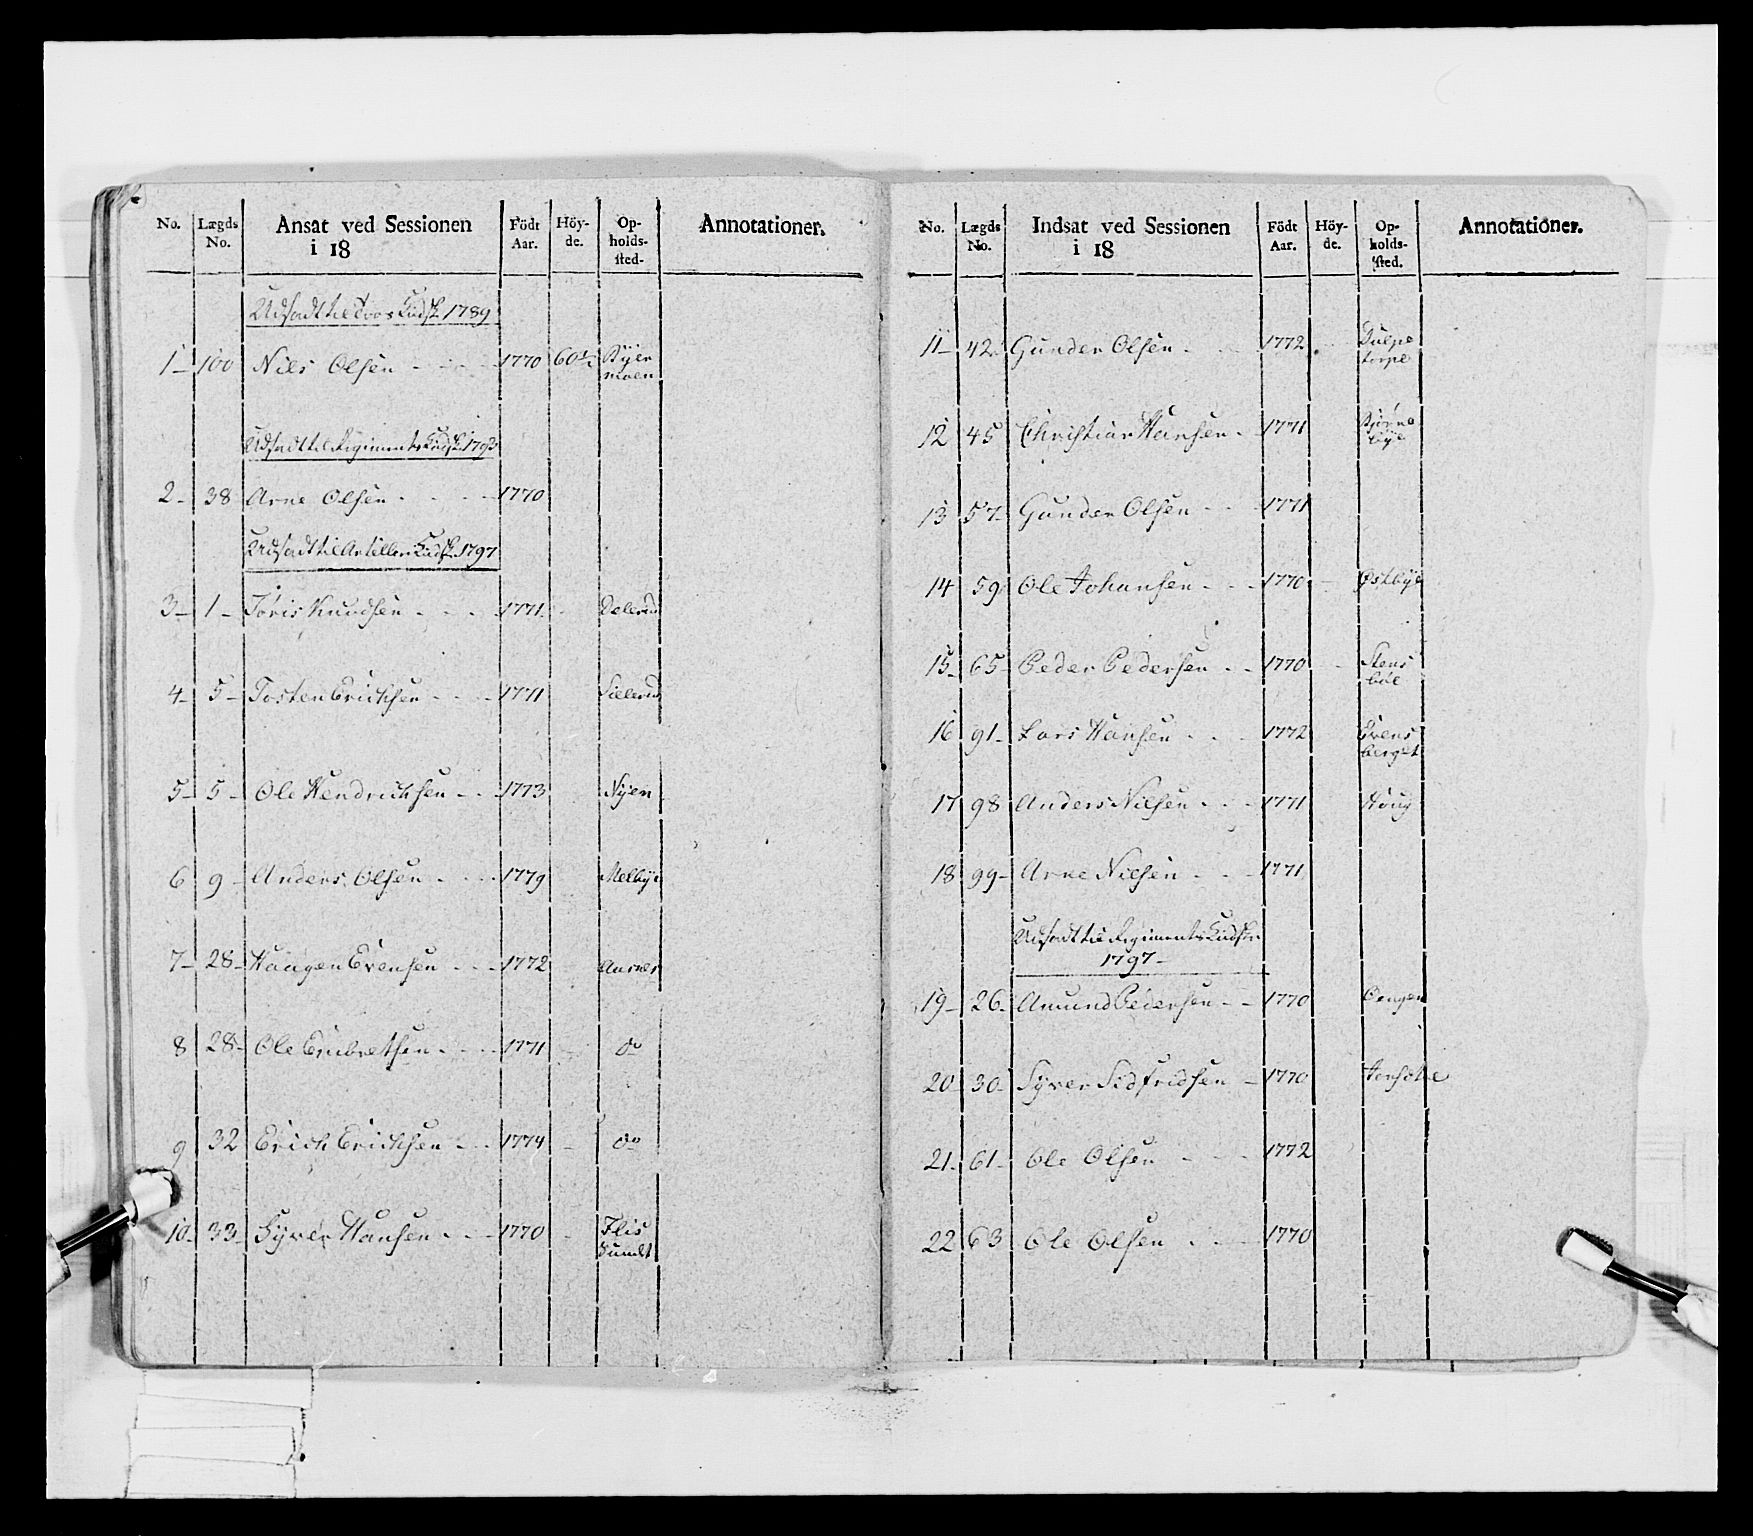 No. Lægds No. Ansat ved Sessionen i 18 Födt Aar. Höy-de. Op-holds-sted- Annotationer.
Udsadt til Kudsk 1789
1 100 Nils Olsen 1770 60½ Byermoen
Udsadt til Regiments Kudsk 1793
2 38 Arne Olsen 1770
Udsadt til Artilleri Kudsk 1797
3 1 Joris Knudsen 1771
4 5 Tosten Erichsen 1771 Sillerud
5 5 Ole Hendrichsen 1773 Nyen
6 9 Anders Olsen 1779 Melbye
7 28 Haagen Evensen 1772 Aarnes
8 28 Ole Embretsen 1771 do
9 32 Erich Erichsen 1774 do
10 33 Syver Hansen 1770 Flissundt
No. Lægds No. Indsat ved Sessionen i 18 Födt Aar. Höy-de. Op-holds-sted. Annotationer.
11 42 Gunder Olsen 1772
12 45 Christian Hansen 1771 Bjørnebye
13 57 Gunder Olsen 1771
14 59 Ole Johansen 1770 Østbye
15 65 Peder Pedersen 1770 Stensbøl
16 91 Lars Hansen 1772 Evensberget
17 98 Anders Nilsen 1771 Houg
18 99 Arne Nilsen 1771
Udsadt til Regiments Kudske
1797
19 26 Amund Pedersen 1770
20 30 Syver Sidfridsen 1770
21 61 Ole Olsen 1772
22 63 Ole Olsen 1770